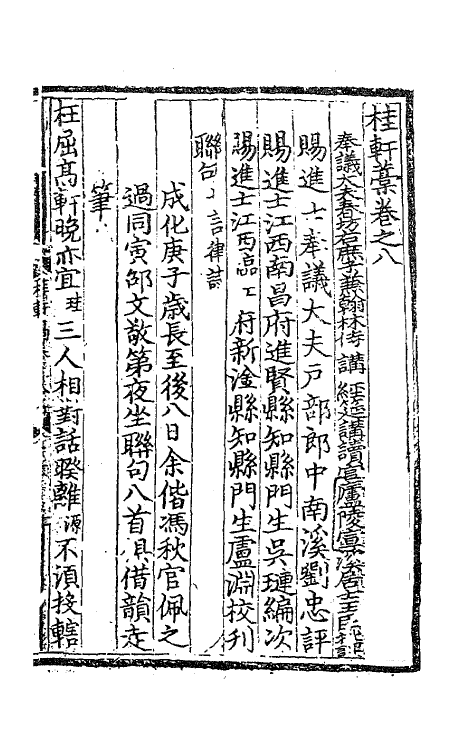 桂軒藁卷之八
奉議大夫春坊右庶子兼翰林侍講 經筵講讀官廬陵
賜進士奉議大夫戶部郎中南溪劉忠評
賜進士江西南昌府進賢縣知縣門生吳璉編次
賜進士江西臨江府新淦縣知縣門生盧淵校刊
聯句 言律詩
成化庚子歲長至後八日余偕馮秋官佩之
過同寅邵文敬第夜坐聯句八首俱借韻走
筆
枉屈高軒晩亦宜 三人相對話暌離 不須投轄